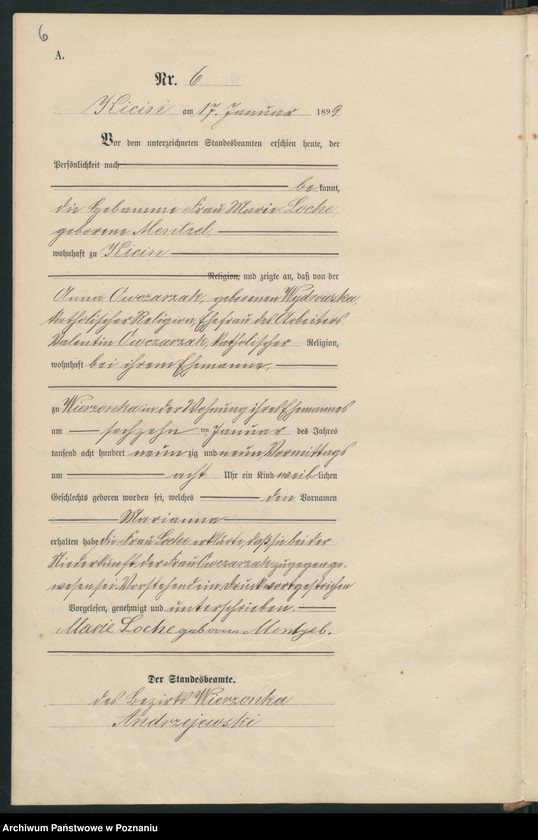 6
A.
Nr. 6
Kicin am 17. Januar 1899
Vor dem unterzeichneten Standesbeamten erschien heute, der
Persönlichkeit nach
bekannt,
die Hebamme Frau Marie Locke,
geborene Mentzel,
wohnhaft zu Kicin
Religion, und zeigte an, daß von der
Anna Owczarzak, geborenen
katholischer Religion, Ehefrau des Arbeiters
Valentin Owczarzak, katholischer Religion,
wohnhaft bei ihrem Ehemanne,
zu Wierzonka in der Wohnung ihres Ehemannes
am sechzehn ten Januar des Jahres
tausend acht hundert neunzig und neun Vormittags
um acht Uhr ein Kind weiblichen
Geschlechts geboren worden sei, welches den Vornamen
Marianna
erhalten habe die Frau Locke erklärte, daß sie bei der
Niederkunft der Frau Owczarzak zugegen ge-
wesen sei. Vorstehend ein Druckwort gestrichen
Vorgelesen, genehmigt und unterschrieben.
Marie Locke geborene Mentzel.
Der Standesbeamte.
des Bezirks Wierzonka
Andrzejewski
Archiwum Państwowe w Poznaniu